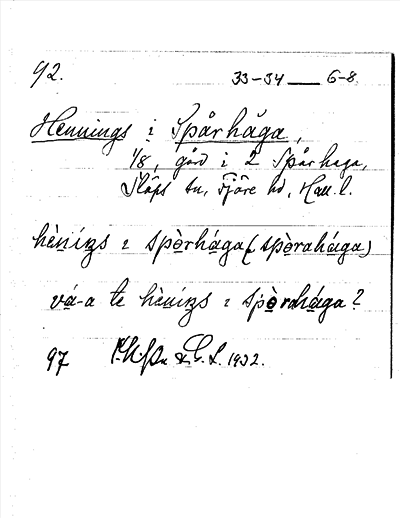 92. 33-34 — 6-8.
Hennings i Spårhåga,
1/8, gård i 2 Spårhaga,
Släps sn, Fjäre hd, Hall. l.
hèníŋs ɩ spòrhága (spòrahága)
vá-a te hèníŋs ɩ spòrahága?
97 & G. L. 1932.